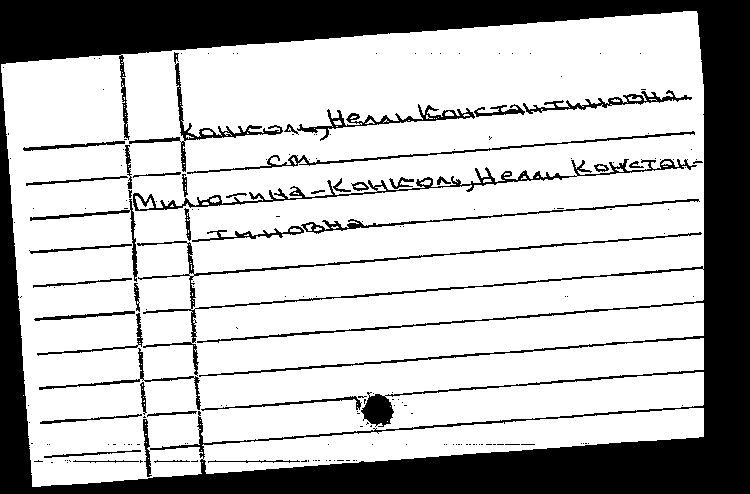 Конколь, Нелли Константиновна.
см.
Милютина-Конколь, Нелли Констан-
тиновна.